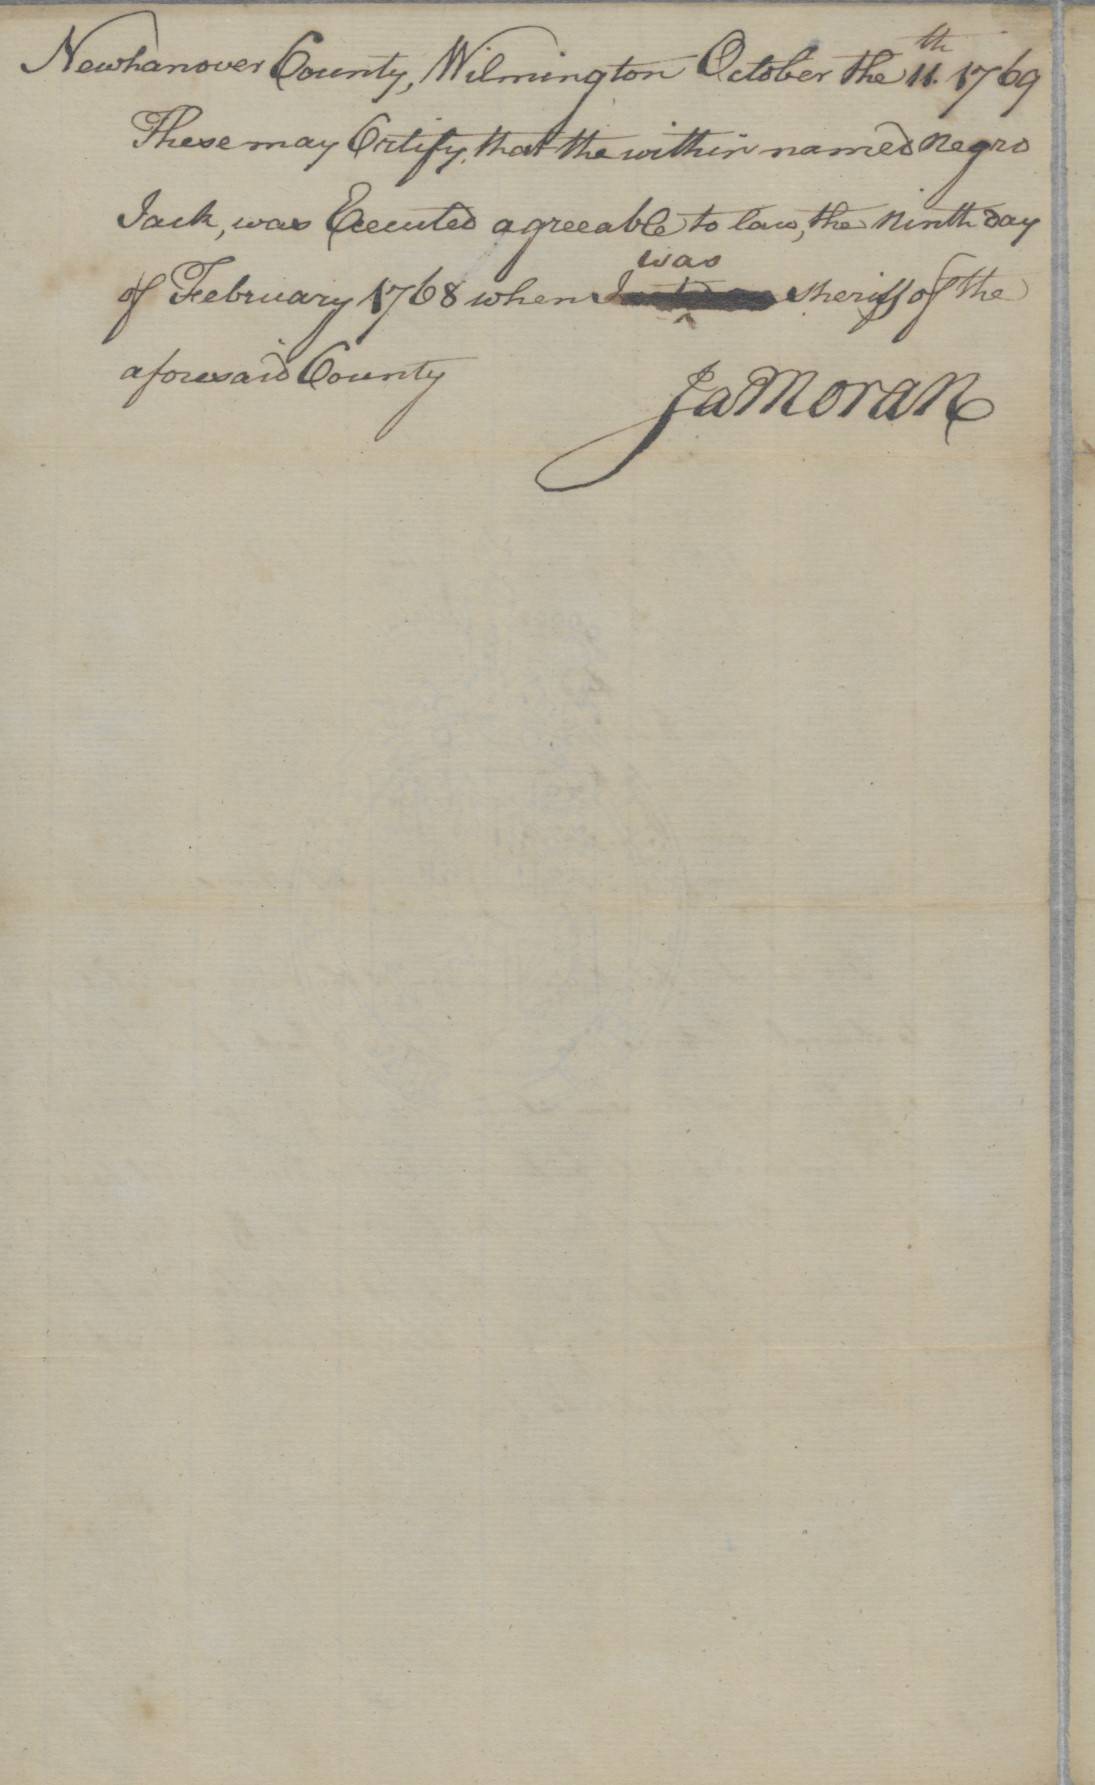 Newhanover County, Wilmington October the 11.th 1769
These may Certify, that the within named Negro
Jack, was Executed agreeable to law, the Ninth day
of February 1768 when I was sheriff of the
aforesaid County
Ja Moran